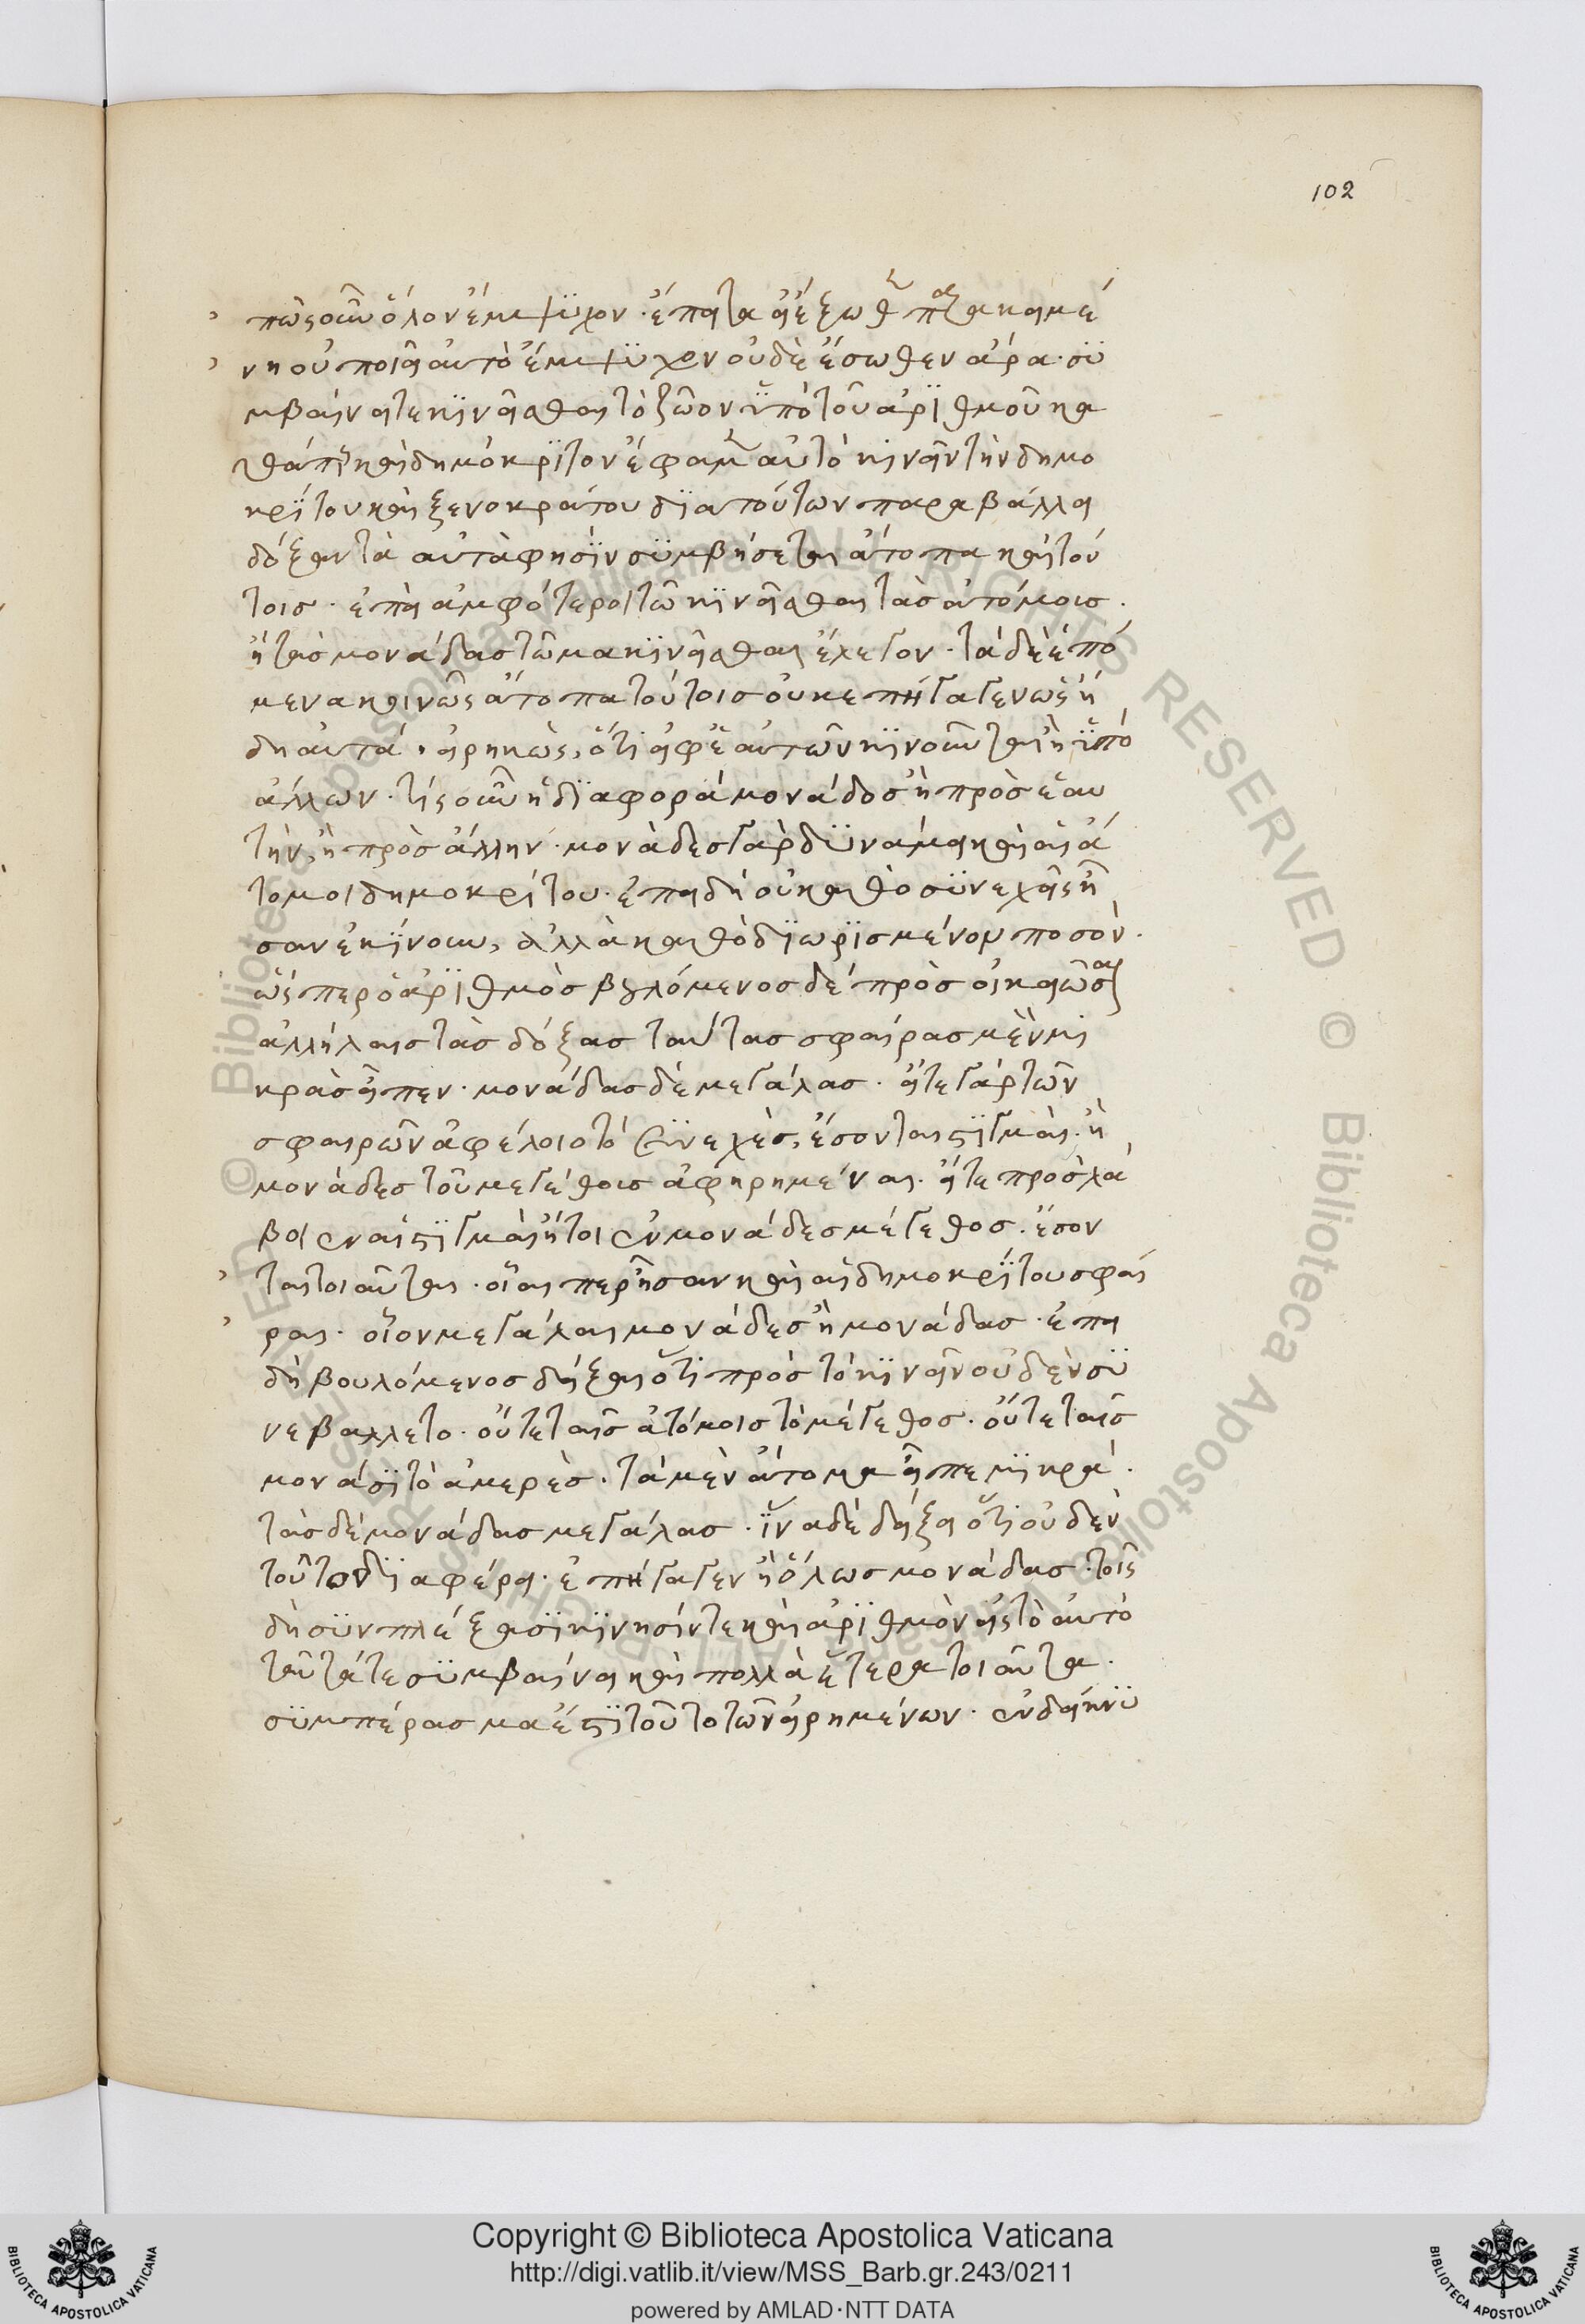 102
πῶς οὖν ὅλον ἔμψϋχον· ἔπειτα εἰ ἔξωθεν παρακειμέ
νη οὐ ποιεῖ αὐτὸ ἔμψϋχον οὐδὲ ἔσωθεν ἄρα· σϋ
μβαίνει τε κϊνεῖσθαι τὸ ζῶον ϋπὸ τοῦ ἀρϊθμοῦ κα
θάπερ καὶ δημόκρϊτον ἔφαμεν αὐτὸ κϊνεῖν τὴν δημο
κρϊτου καὶ ξενοκράτου δϊα τούτων παραβάλλει
δόξαν τὰ αὐτὰ φησϊν σϋμβήσεται ἄτοπα καὶ τού
τοις· ἐπεὶ ἀμφότεροι τῶ κϊνεῖσθαι τὰς ἀτόμους·
ἢ τὰς μονάδας τῶμα κϊνεῖσθαι ἔλεγον· τὰ δὲ ἑπό
μενα κοινῶς ἄτοπα τούτοις οὐκ ἐπήγαγεν ὡς ἤ
δη αὐτά· εἰρηκὼς, ὅτι ἀφ' ἑαυτῶν κϊνοῦνται ἢ ϋπὸ
ἄλλων· τίς οὖν ἡ δϊαφορὰ μονάδος ἢ πρὸς ἑαυ
τὴν, ἢ πρὸς ἄλλην· μονάδες γὰρ δϋνάμει καὶ αἱ ἄ
τομοι δημοκρίτου· ἐπειδὴ οὐ καθὸ σϋνεχεῖς ἦ
σαν ἐκϊνουν, ἀλλὰ καθὸ δϊωρϊσμένον ποσόν·
ὥσπερ ὁ ἀρϊθμὸς βουλόμενος δὲ προσοικειῶσαι
ἀλλήλαις τὰς δόξας ταύτας σφαίρας μὲν μι
κρὰς εἶπεν· μονάδας δὲ μεγάλας· εἴτε γὰρ τῶν
σφαιρῶν ἀφέλοιο τὸ σϋνεχὲς, ἔσονται στϊγμαὶ· ἢ
μονάδες τοῦ μεγέθους ἀφηρημέναι· εἴτε προσλά
βοιεν αἱ στϊγμαὶ ἤτοι ἐν μονάδες μέγεθος· ἔσον
ται τοιαῦται· οἷαι περ ἦσαν καὶ αἱ δημοκρϊτου σφαῖ
ραι· οἷον μεγάλαι μονάδες ἢ μονάδας· ἐπει
δὴ βουλόμενος δεῖξαι ὅτϊ πρὸς τὸ κϊνεῖν οὐδὲν σϋ
νεβάλλετο· οὔτε ταῖς ἀτόμοις τὸ μέγεθος· οὔτε ταῖς
μονάσϊ τὸ ἀμερὲς· τὰ μὲν ἄτομα εἶπε μϊκρά·
τὰς δὲ μονάδας μεγάλας· ϊνα δὲ δείξη ὅτι οὐδὲν
τοῦτον δϊαφέρει· ἐπήγαγεν ἢ ὅλως μονάδας· τοῖς
δὴ σϋνπλέξασϊ κϊνησίν τε καὶ ἀρϊθμὸν εἰς τὸ αὐτὸ
ταῦτά τε σϋμβαίνει καὶ πολλὰ ἕτερα τοιαῦτα·
σϋμπέρασμα ἐστϊ τοῦτο τῶν εἰρημένων· ἐνδείκνϋ
Copyright © Biblioteca Apostolica Vaticana
http://digi.vatlib.it/view/MSS_Barb.gr.243/0211
powered by AMLAD·NTT DATA